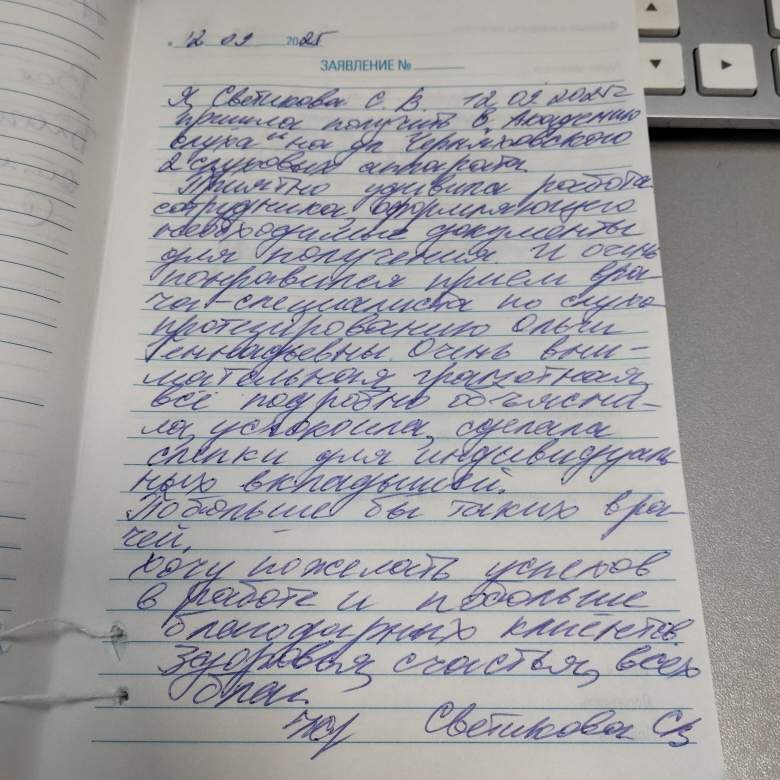 12 09 2025
ЗАЯВЛЕНИЕ №
Я, Светикова С. В. 12.09.2025 г
пришла получить в "Академию
слуха" на ул Черняховского
2 слуховых аппарата.
Приятно удивила работа
сотрудника оформляющего
необходимые документы
для получения. И очень
понравился прием вра-
ча-специалиста по слухо
протезированию Ольги
Геннадьевны. Очень вни-
мательная, грамотная,
все подробно объясни-
ла, успокоила, сделала
слепки для индивидуаль
ных вкладышей.
Побольше бы таких вра-
чей.
Хочу пожелать успехов
в работе и побольше
благодарных клиентов.
Здоровья, счастья, всех
благ.
Светикова СВ